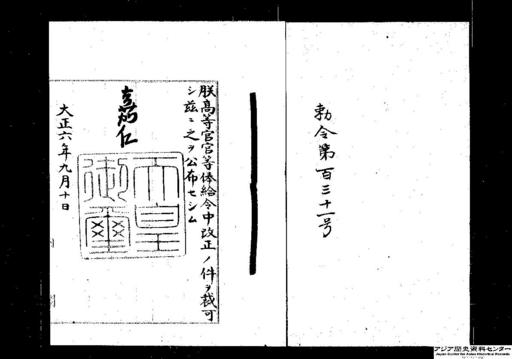 勅令第百三十一号
朕高等官官等俸給令中改正ノ件ヲ裁可
シ茲ニ之ヲ公布セシム
嘉仁
天皇
御璽
大正六年九月十日
アジア歴史資料センター
Japan Center for Asian Historical Records